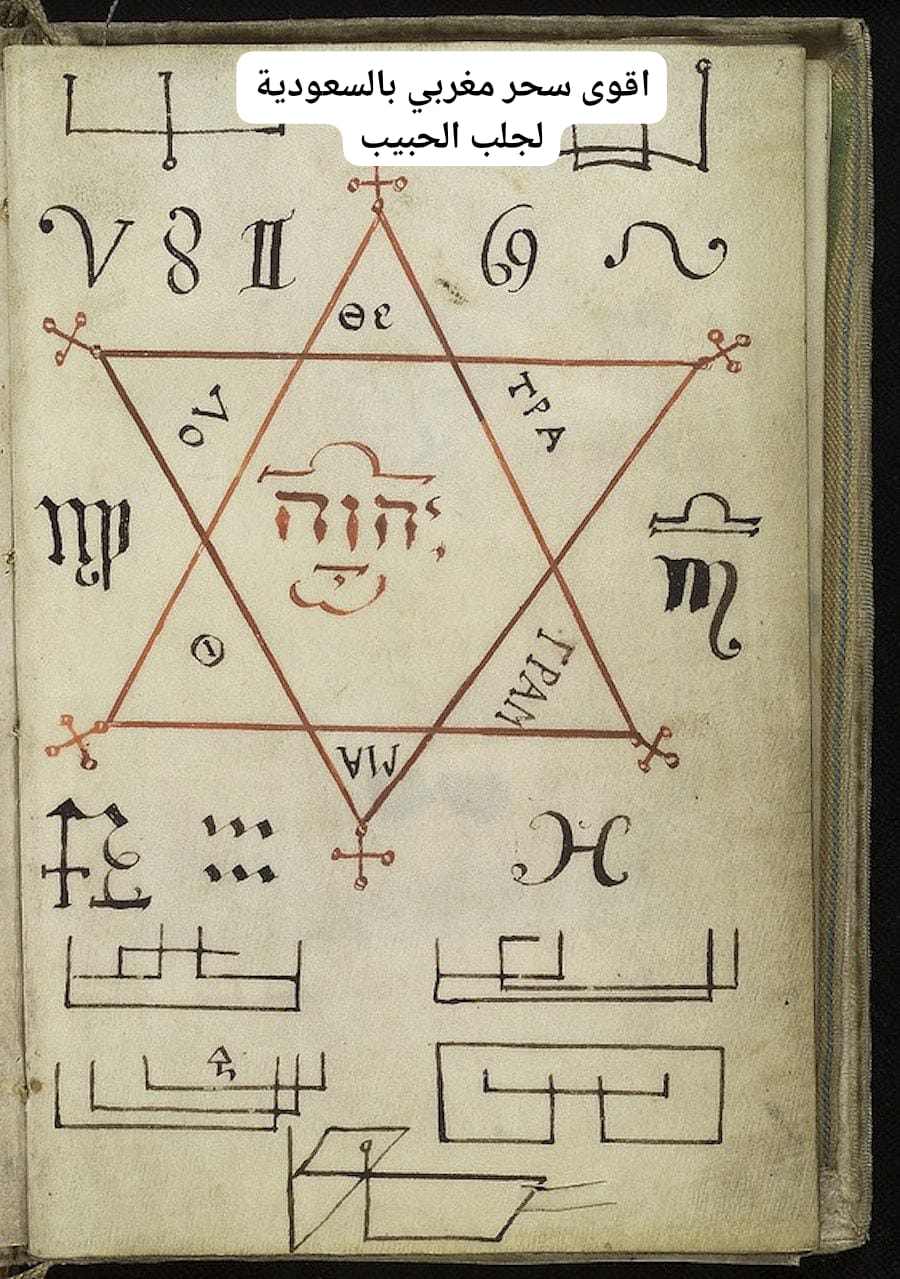 اقوى سحر مغربي بالسعودية
لجلب الحبيب
Θε
ΤΡΑ
יהוה
ΓΡΑΜ
ΜΑ